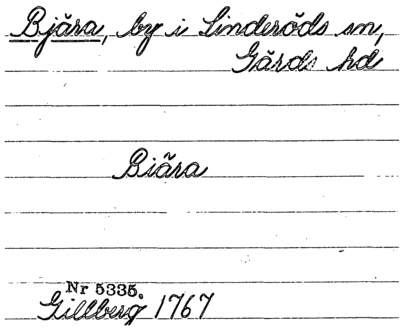 Bjära, by i Linderöds sn,
Gärds hd
Biära
Nr 5335.
Gillberg 1767